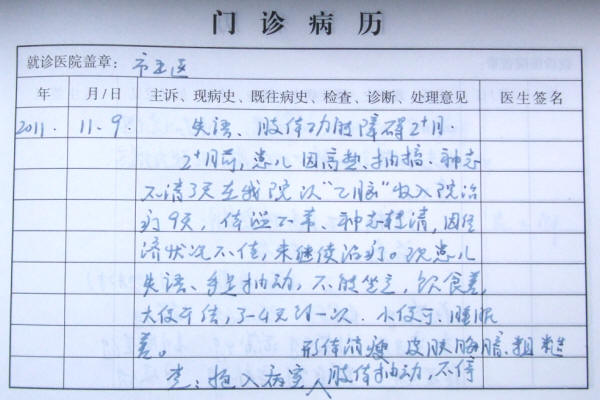 门诊病历
就诊医院盖章：市五医
年 月/日 主诉、现病史、既往病史、检查、诊断、处理意见 医生签名
2011. 11.9. 失语、肢体功能障碍2+月.
2+月前，患儿因高热、抽搐、神志
不清3天在我院以“乙脑”收入院治
疗9天，体温下降、神志转清，因经
济状况不佳，未继续治疗。现患儿
失语、手足抽动，不能坐立，饮食差，
大便干结，3-4天一次.小便可、睡眠
差。 形体消瘦 皮肤晦暗、粗糙
查：抱入病室 肢体抽动，不停